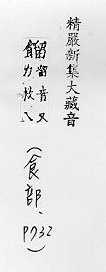 精嚴新集大藏音
餾 留音又
力救八
(食部、
P732